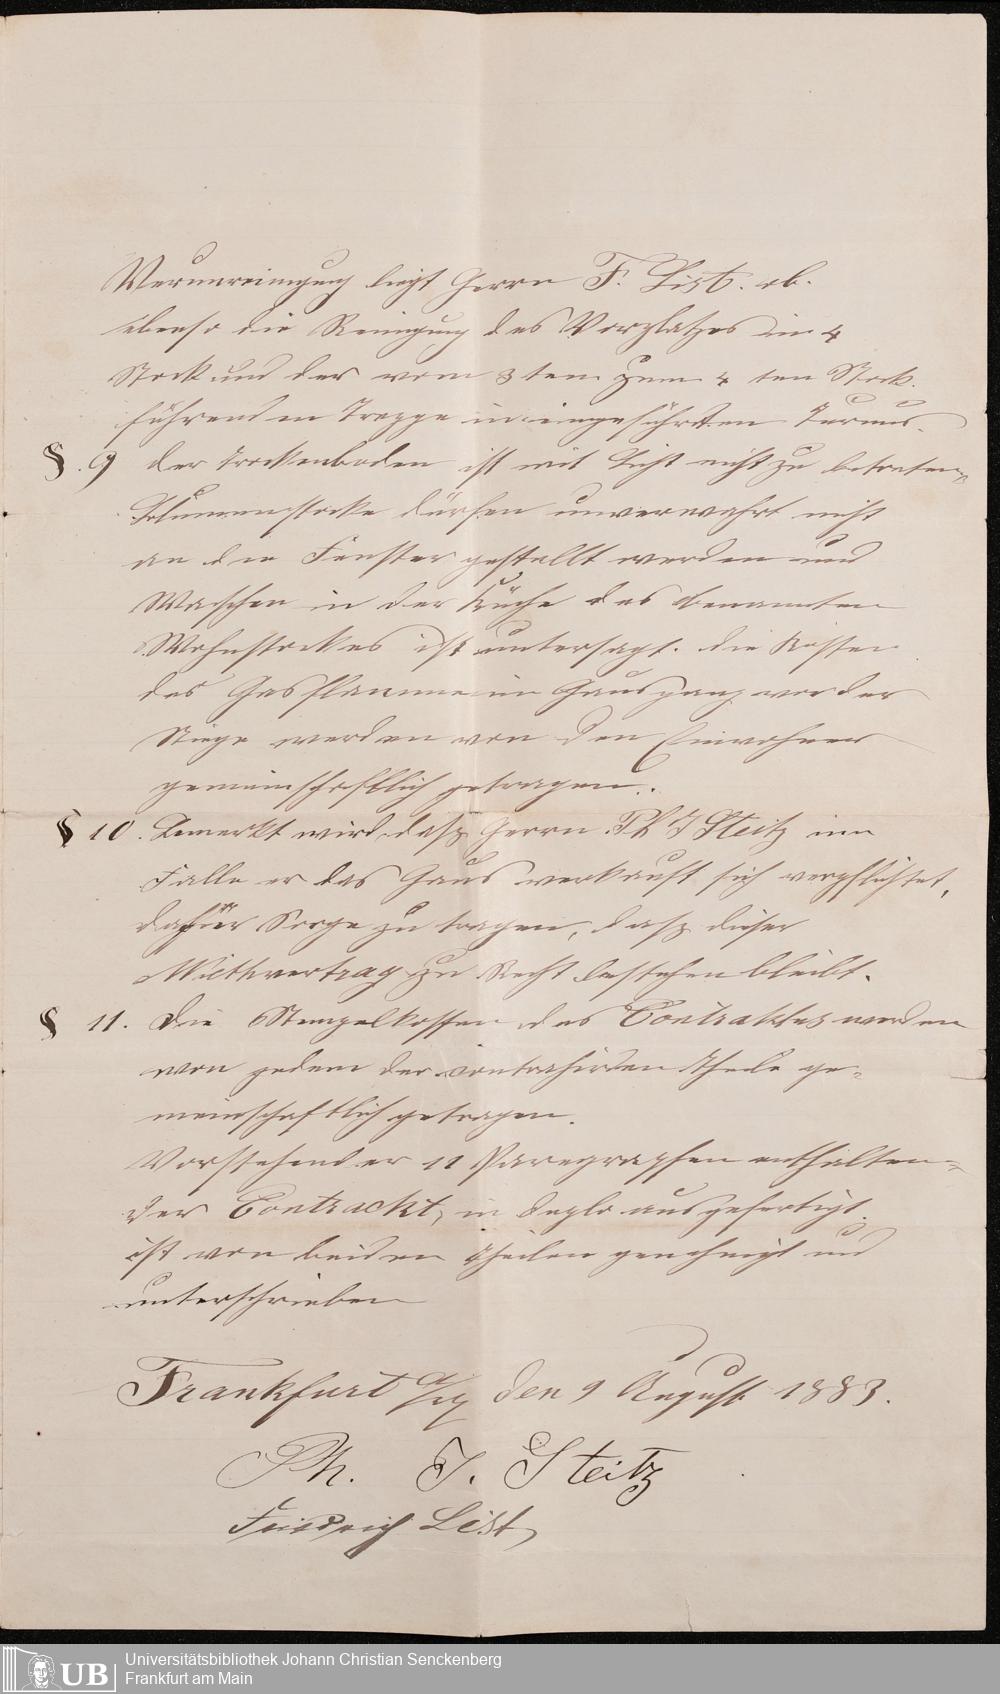 Verunreinigung liegt Herrn F. List. ob.
ebenso die Reinigung des Vorplatzes im 4
Stock und der vom 3 ten zum 4 ten Stock
führenden Treppe in eingeführten Turnus.
§. 9 der Trockenboden ist mit Licht nicht zu betreten,
Blumenstöcke dürfen unverwahrt nicht
an die Fenster gestellt werden und
Waschen in der Küche des benannten
Wohnstockes ist untersagt. die Kosten
des Gasflamme im Hausgang vor der
Stiege werden von den Einwohner
gemeinschaftlich getragen.
§ 10. Bemerkt wird, dass Herrn Ph J Steitz im
Falle er das Haus verkauft sich verpflichtet,
dafür Sorge zu tragen, dass dieser
Miethvertrag zu Recht bestehen bleibt.
§ 11. Die Stempelkosten des Contraktes werden
von jedem der contrahirden Theile ge-
meinschaftlich getragen.
Vorstehender 11 Paregraphen enthalten-
der Contrackt, in duplo ausgefertigt
ist von beiden Theilen genehmigt und
unterschrieben
Frankfurt a/M den 9 August 1883.
Ph. J. Steitz
Friedrich List
Universitätsbibliothek Johann Christian Senckenberg
UB Frankfurt am Main